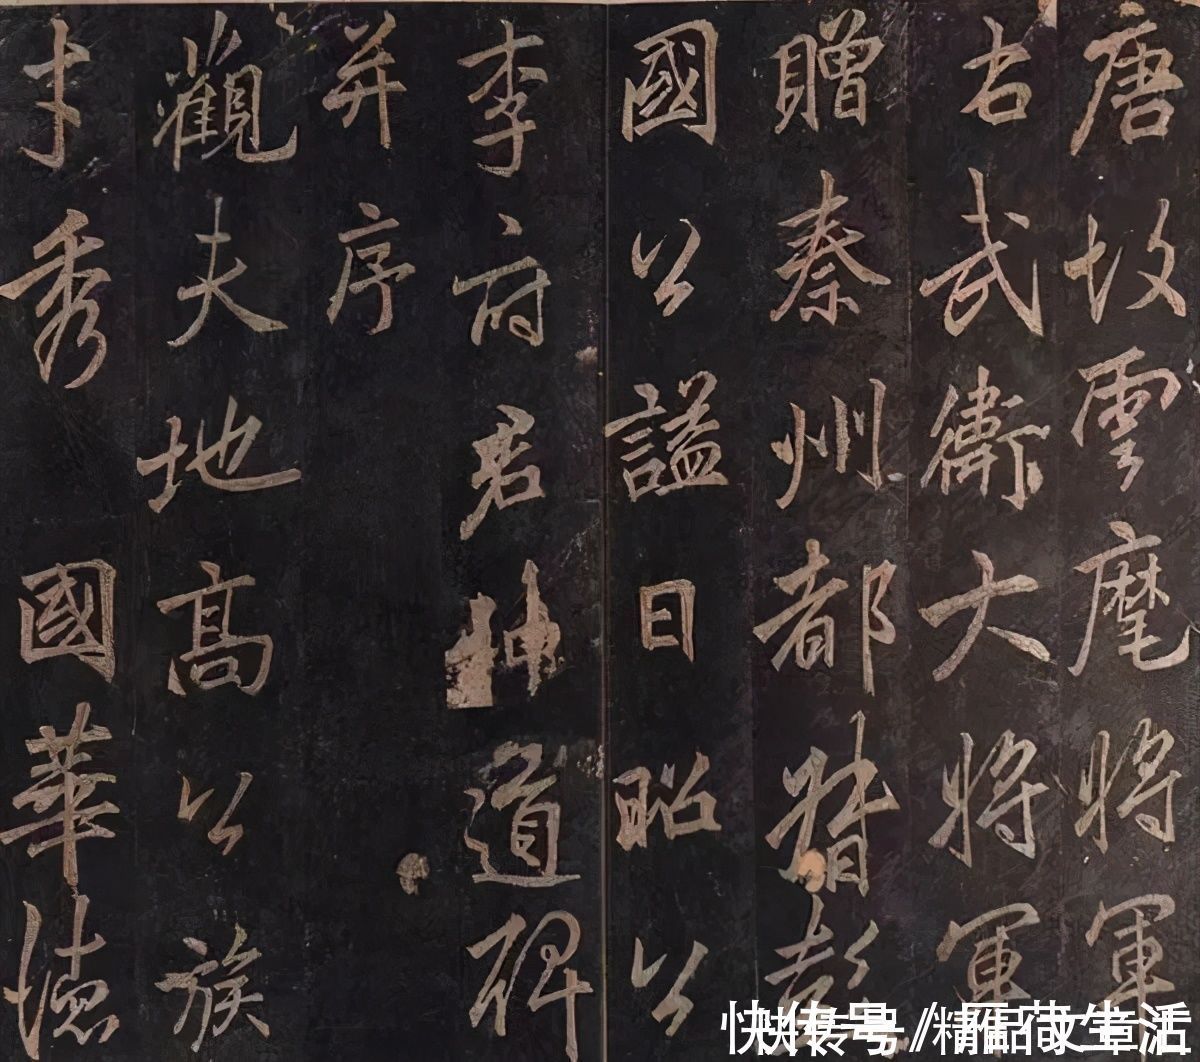 唐故雲麾將軍
右武衛大將軍
贈秦州都督彭
國公謚曰昭公
李府君神道碑
并序
觀夫地高公族
才秀國華德
快传号 /